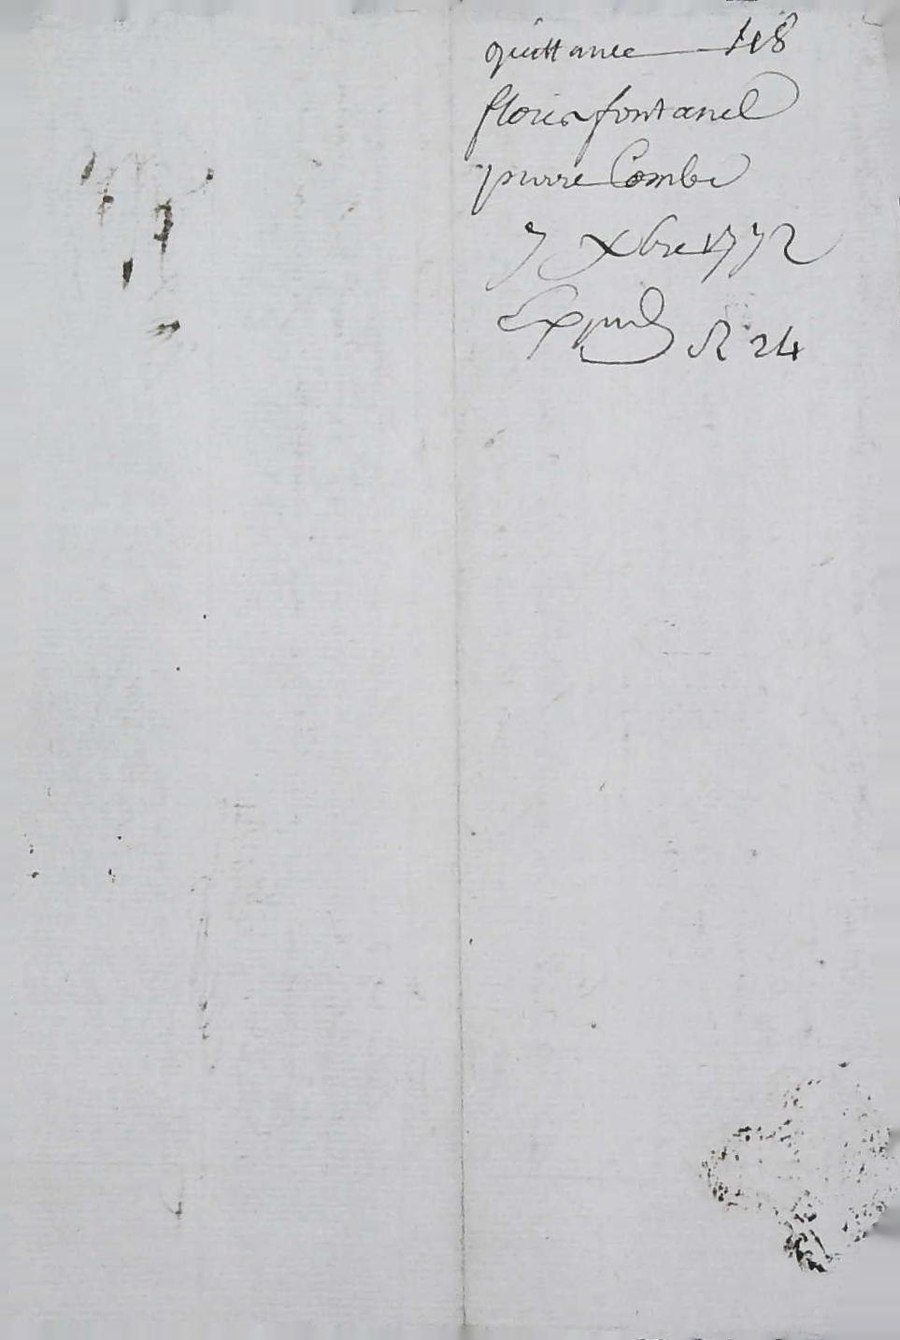 quittance 148
floric fontanel
pierre Combe
7 Xbre 1772
Expiul R 24